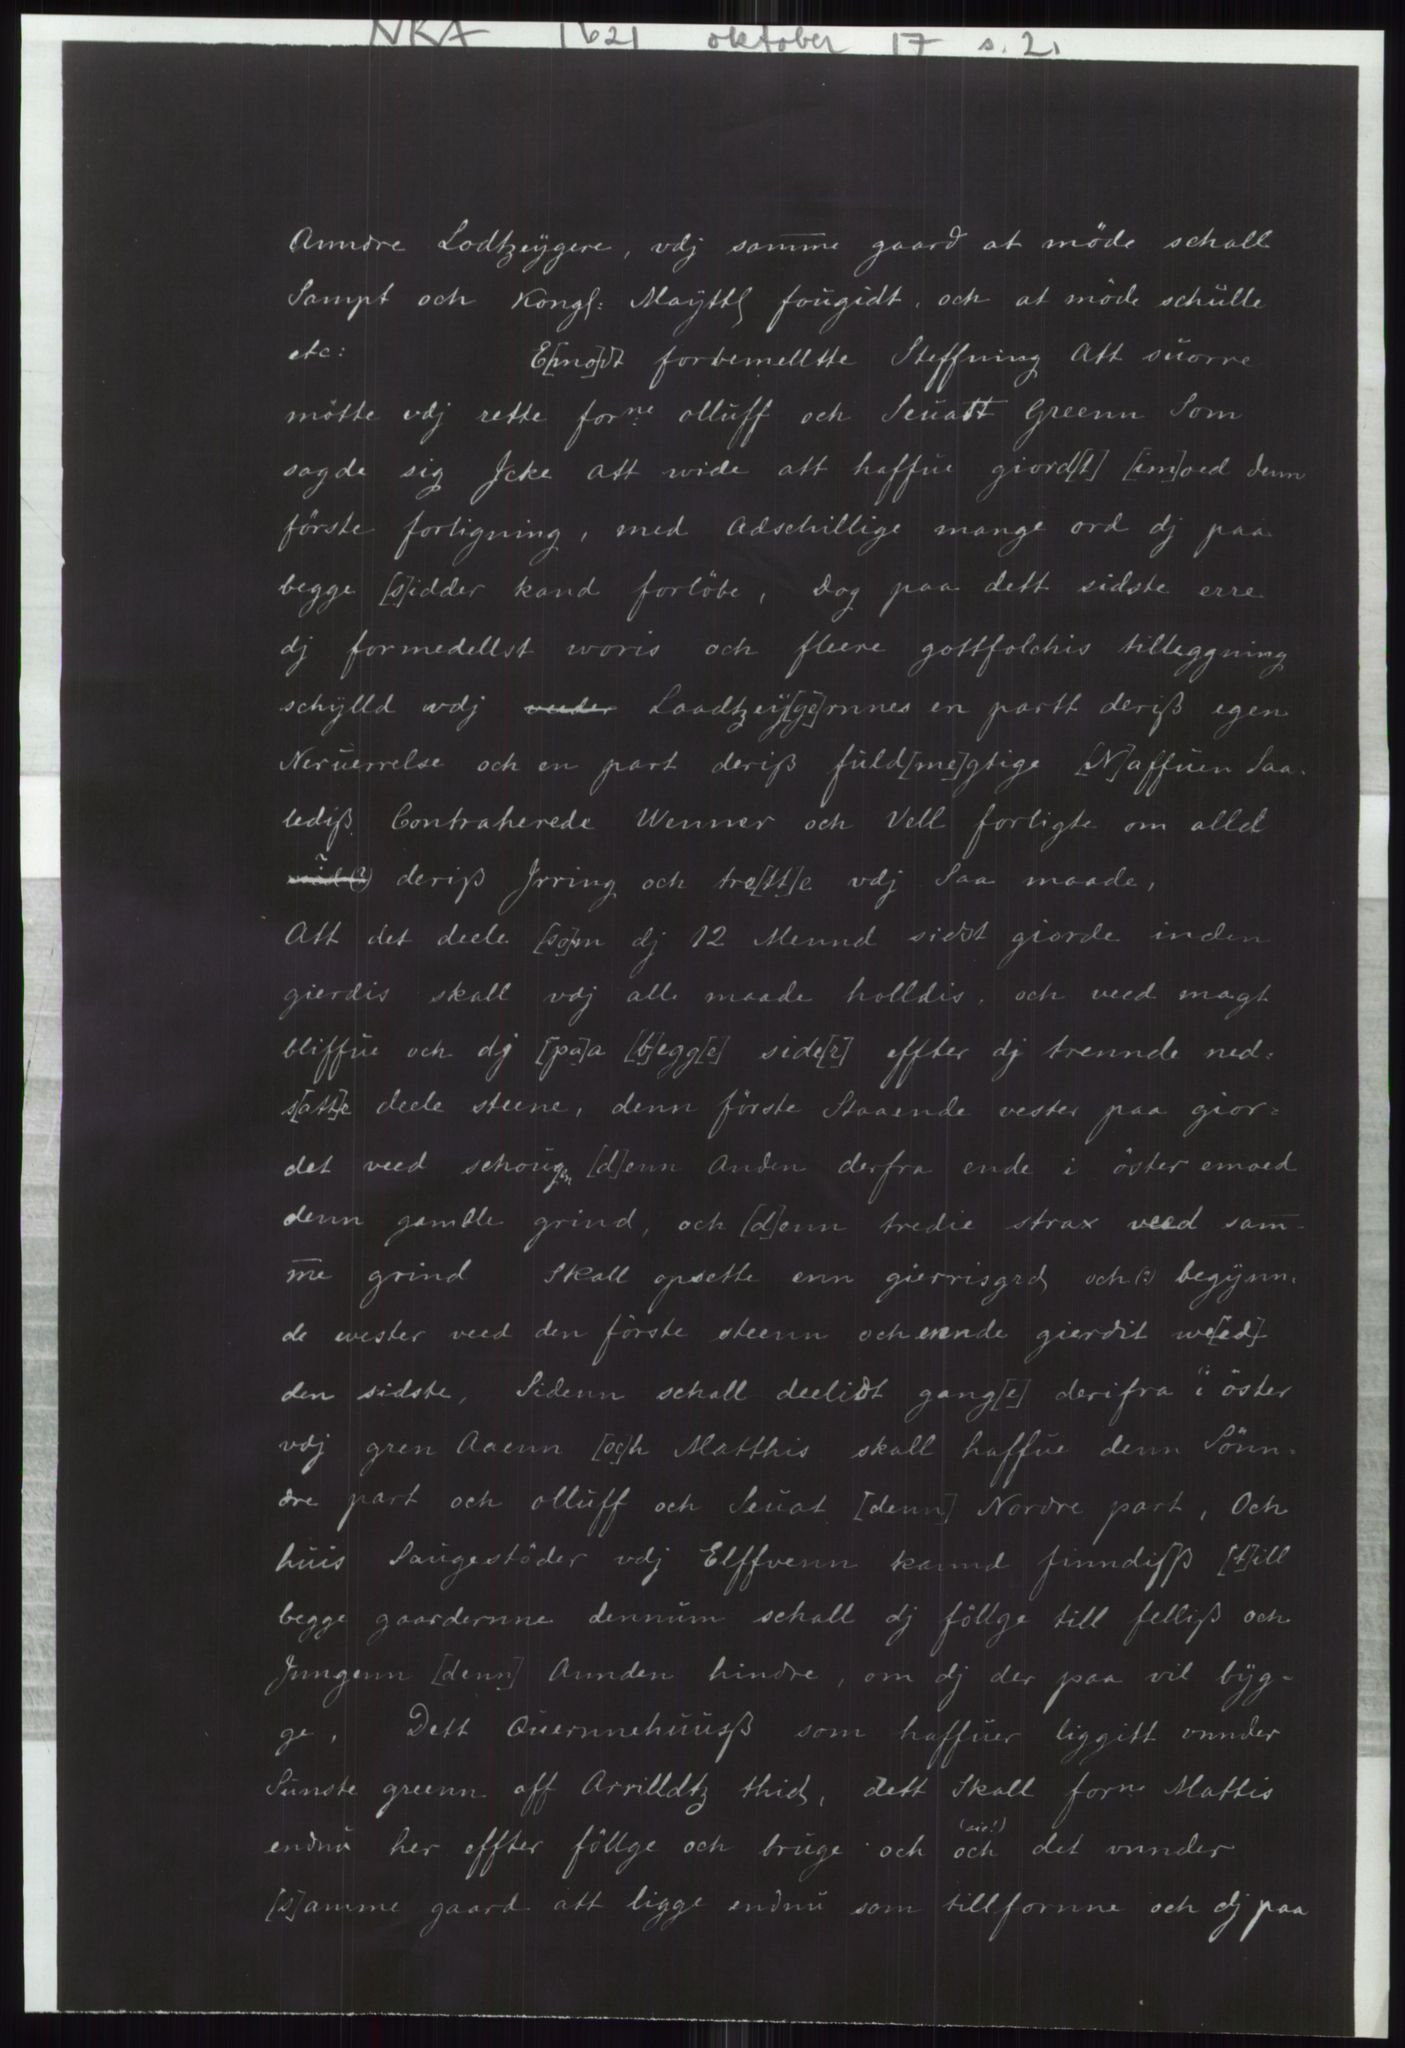 NKA 1621 oktober 17 s. 2.
Anndre Lodtzeÿgere, vdj samme gaard at möde schall
Sampt och Kongl: Maÿttz fougidt, och at möde schulle
etc: E[mo]dt forbemelltte Steffning Att suorre
mötte vdj rette forne olluff och Seuatt Greenn Som
sagde sig Jcke att wide att haffue giord[t] [im]oed denn
förste forligning, med Adschillige mange ord dj paa
begge [s]idder kand forlöbe, Dog paa dett sidste erre
dj formedellst woris och fleere gottfolchis tilleggning
schÿlld wdj Laadtzeÿ[ge]rnnes en partt deriß egen
Neruerrelse och en part deriß fuld[me]gtige [N]affuen Saa-
lediß Contraherede Wenner och Vell forligte om alld
deriß Jrring och tre[tt]e vdj Saa maade,
Att det deele [so]m dj 12 Mennd sidst giorde inden
gierdis skall vdj alle maade holldis, och veed magt
bliffue och dj [pa]a [b]egg[e] side[r] effter dj trennde ned=
s[att]e deele steene, denn förste Staaende vester paa gior=
det veed schougen [d]enn Anden derfra ende i öster emoed
denn gamble grind, och [d]enn tredie strax veed sam-
me grind Skall opsette enn gierrisgrd och(?) begÿnn=
de wester veed den förste steenn och ennde gierdit we[ed]
den sidste, Sidenn schall deelidt gang[e] derifra i öster
vdj gren Aaenn [oc]h Matthis skall haffue denn Sönn=
dre part och olluff och Seuat [denn] Nordre part, Och
huis Saugestöder vdj Elffvenn kannd finndisß [t]ill
begge gaardernne dennum schall dj föllge till felliß och
Jnngenn [denn] Annden hindre, om dj der paa vil bÿg-
ge, Dett Quernnehuusß som haffuer liggitt vnnder
Sunste greenn aff Arvilldtz thid, dett Skall forne Mattis
endnu her effter föllge och bruge och och (sic!) det vnnder
[s]amme gaard att ligge endnu som tillfornne och dj paa